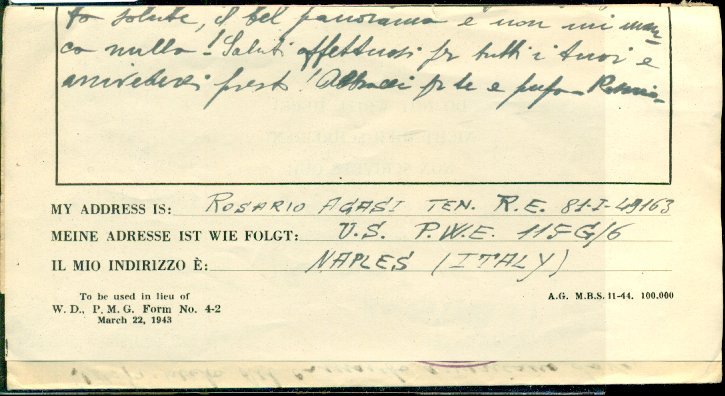 to salute, il bel panorama e non mi man-
ca nulla! Saluti affettuosi per tutti i tuoi e
arrivederci presto! Abbracci per te e
MY ADDRESS IS: ROSARIO AGASI TEN. R.E. 81-I-49163
MEINE ADRESSE IST WIE FOLGT: U.S. P.W.E. 115 G/6
IL MIO INDIRIZZO È: NAPLES (ITALY)
To be used in lieu of
W. D., P. M. G. Form No. 4-2
March 22, 1943
A.G. M.B.S. 11-44. 100.000